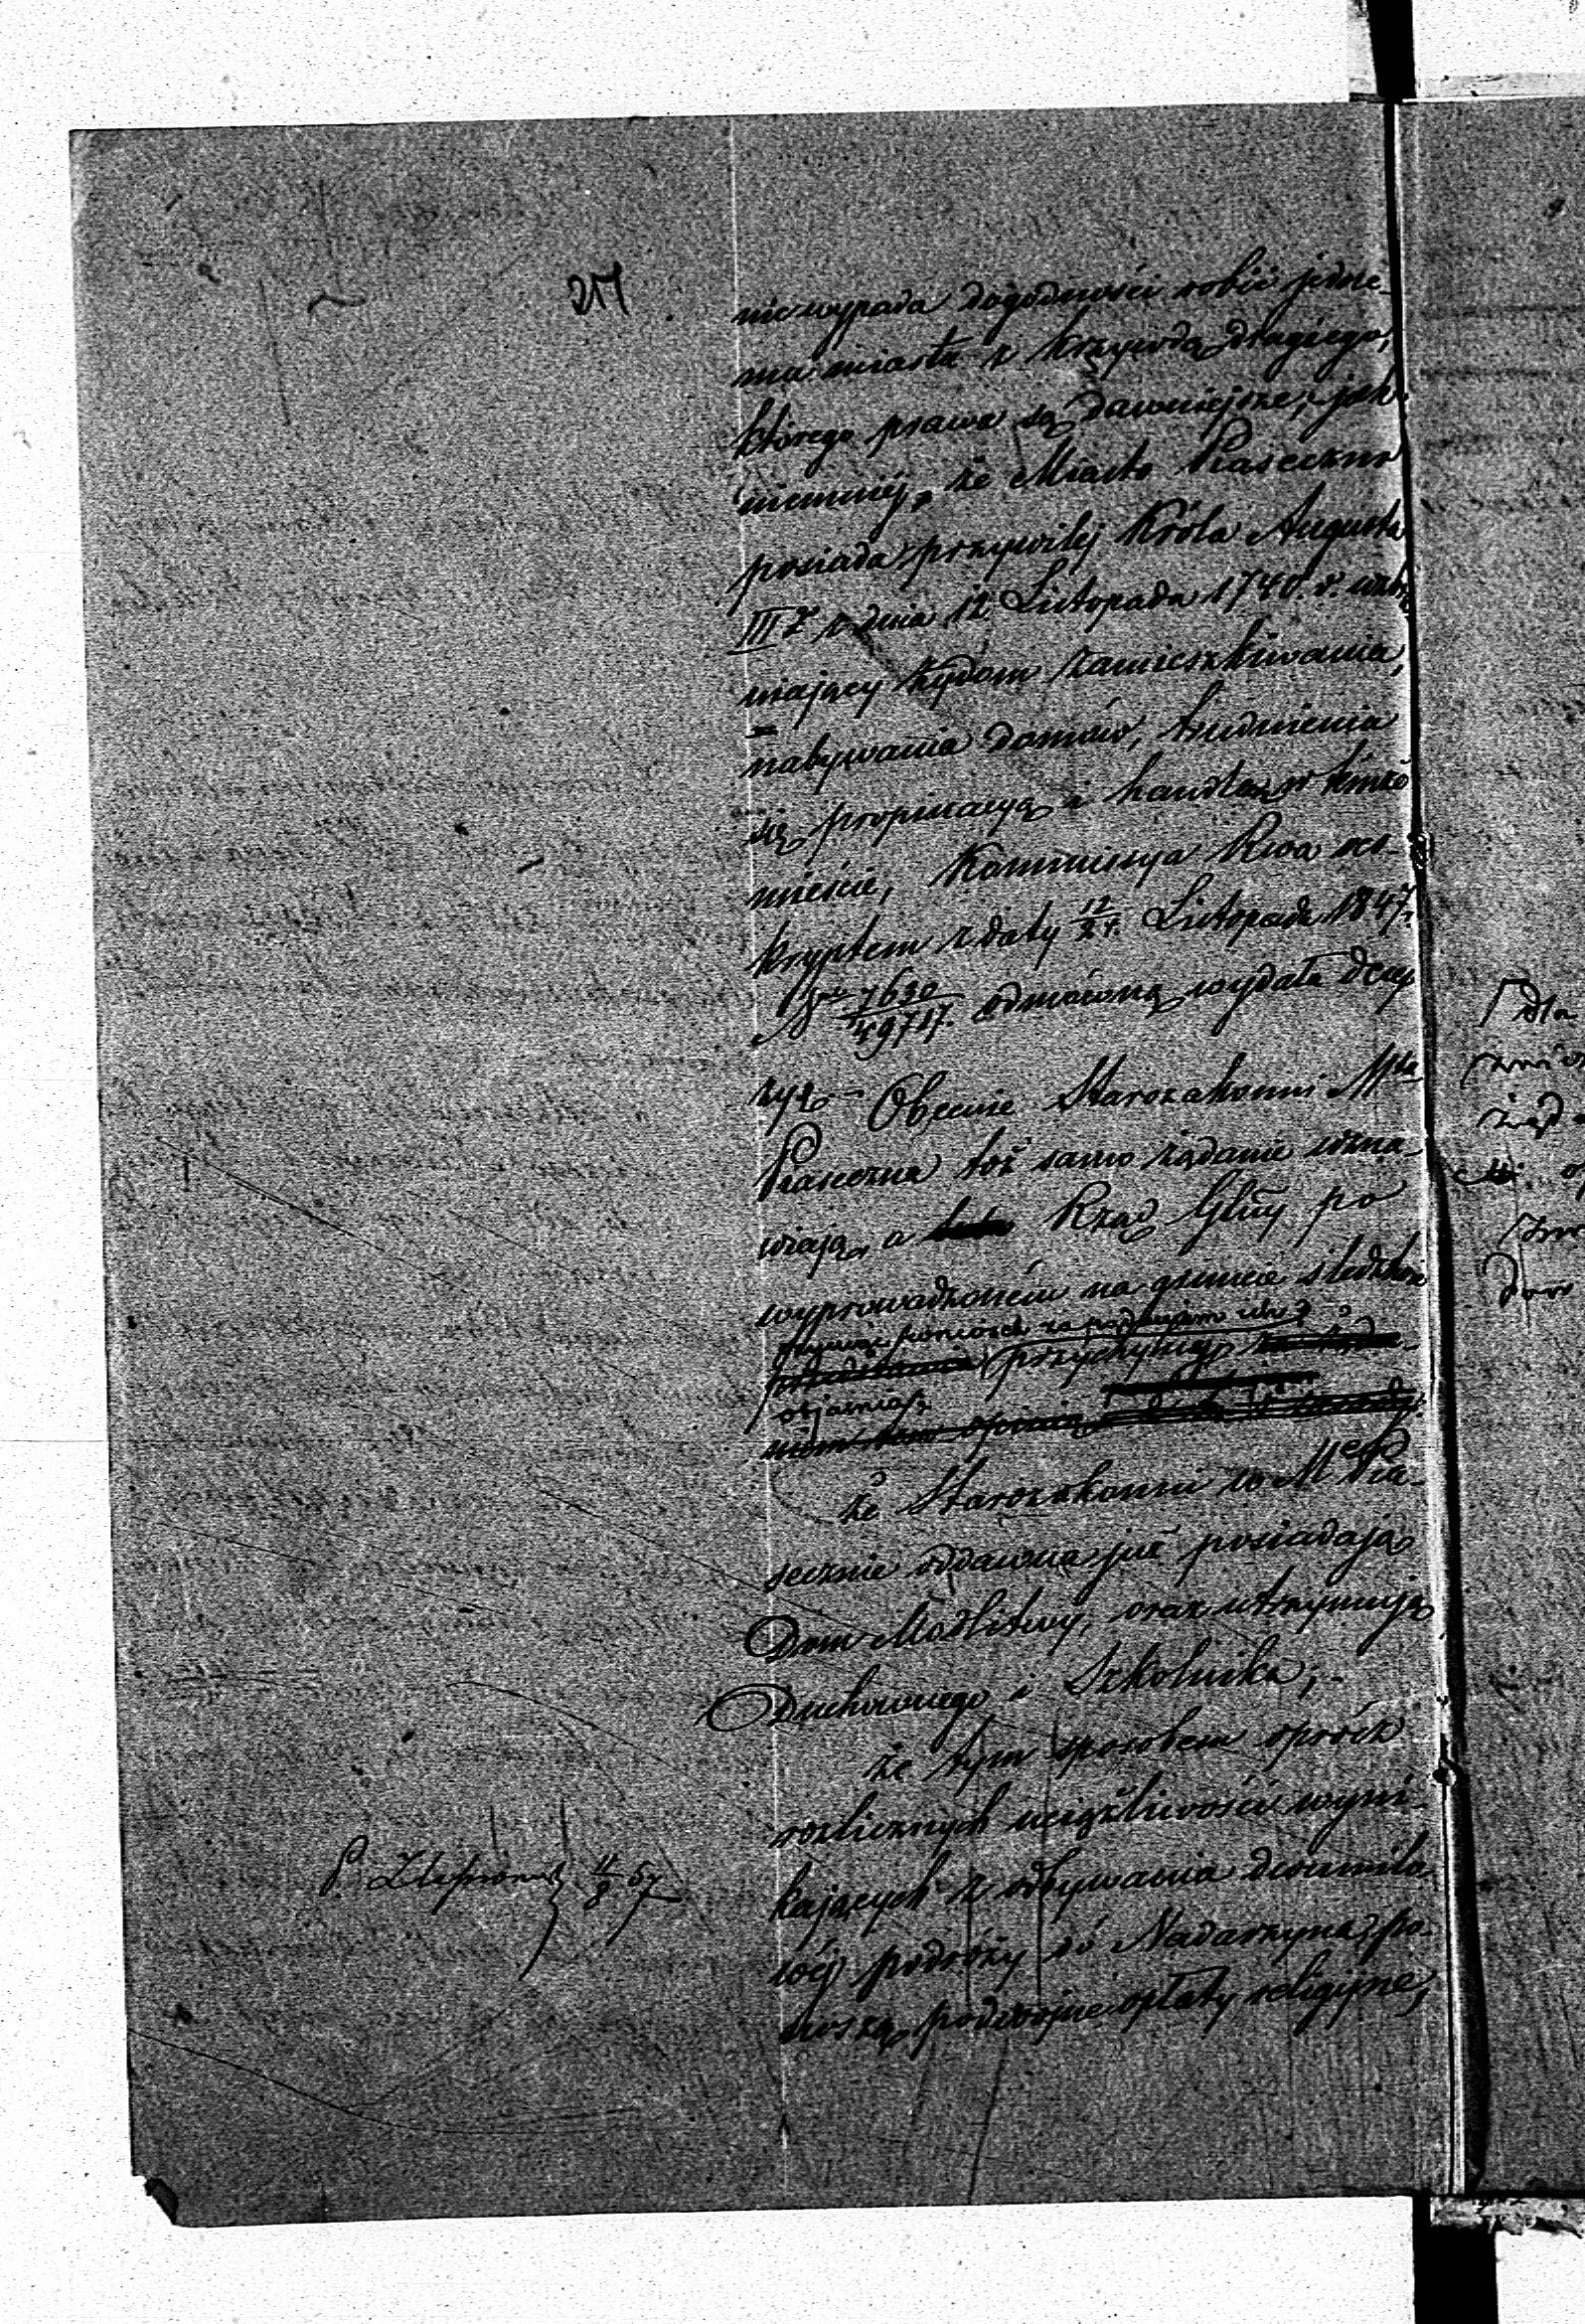 217.
nie wypada dogodności robić jedne-
mu miastu z krzywdą drugiego,
którego prawa są dawniejsze, jak
niemniej, że Miasto Piaseczno
posiada przywilej Króla Augusta
III z dnia 12 Listopada 1740 r. wzbra
niający żydom zamieszkiwania,
nabywania domów, trudnienia
się propinacyą i handlem w témże
mieście, Kommissya Rwa res-
kryptem z daty 12/24. Listopada 1847.
N 7630/49717. odmówną wydała decy
zyą – Obecnie Starozakonni Mta
Piaseczna toż samo żądanie wzna-
wiają, a Rząd Glny po
wyprowadzeniu na gruncie śledztwa
przychyla
objaśnia,
że Starozakonni w Mcie Pia-
secznie oddawna już posiadają
Dom Modlitwy, oraz utrzymują
Duchownego i Szkolnika,
że tym sposobem oprócz
rozlicznych uciążliwości wyni-
kających z odbywania dwumilo
wéj podróży do Nadarzyna, po-
noszą podwójne opłaty religijne,
P. 11/8 57
dla